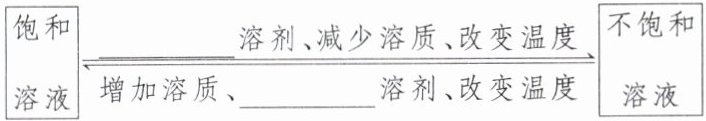 饱和
溶液
________溶剂、减少溶质、改变温度
增加溶质、________溶剂、改变温度
不饱和
溶液